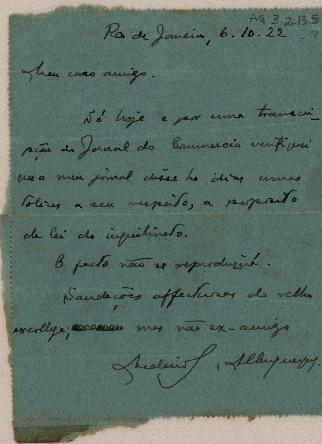 AG 3.2.13.5
Rio de Janeiro, 6.10.22
Meu caro amigo.
Só hoje e por uma transcri-
pção do Jornal do Commercio verifiquei
que o meu jornal disse ha dias umas
tolices a seu respeito, a proposito
da lei do inquilinato.
O facto não se reproduzirá.
Saudações affectuosas do velho
excollega, mas não ex-amigo
Medeiros Albuquerque